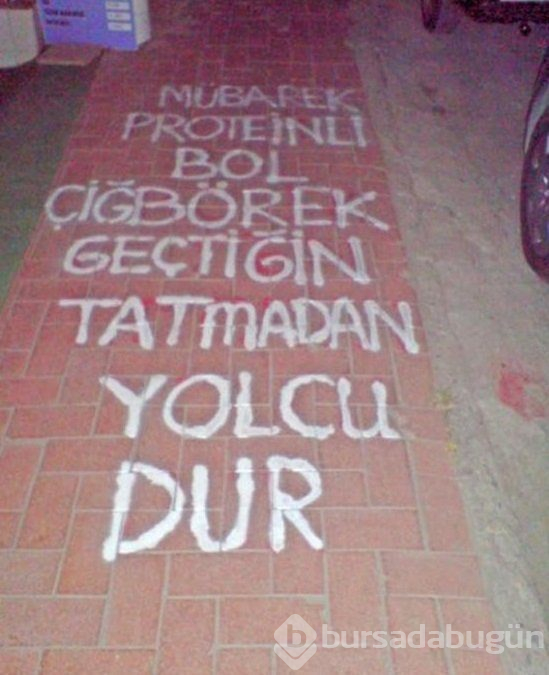 MÜBAREK
PROTEİNLİ
BOL
ÇİĞBÖREK
GEÇTİĞİN
TATMADAN
YOLCU
DUR
bursadabugün